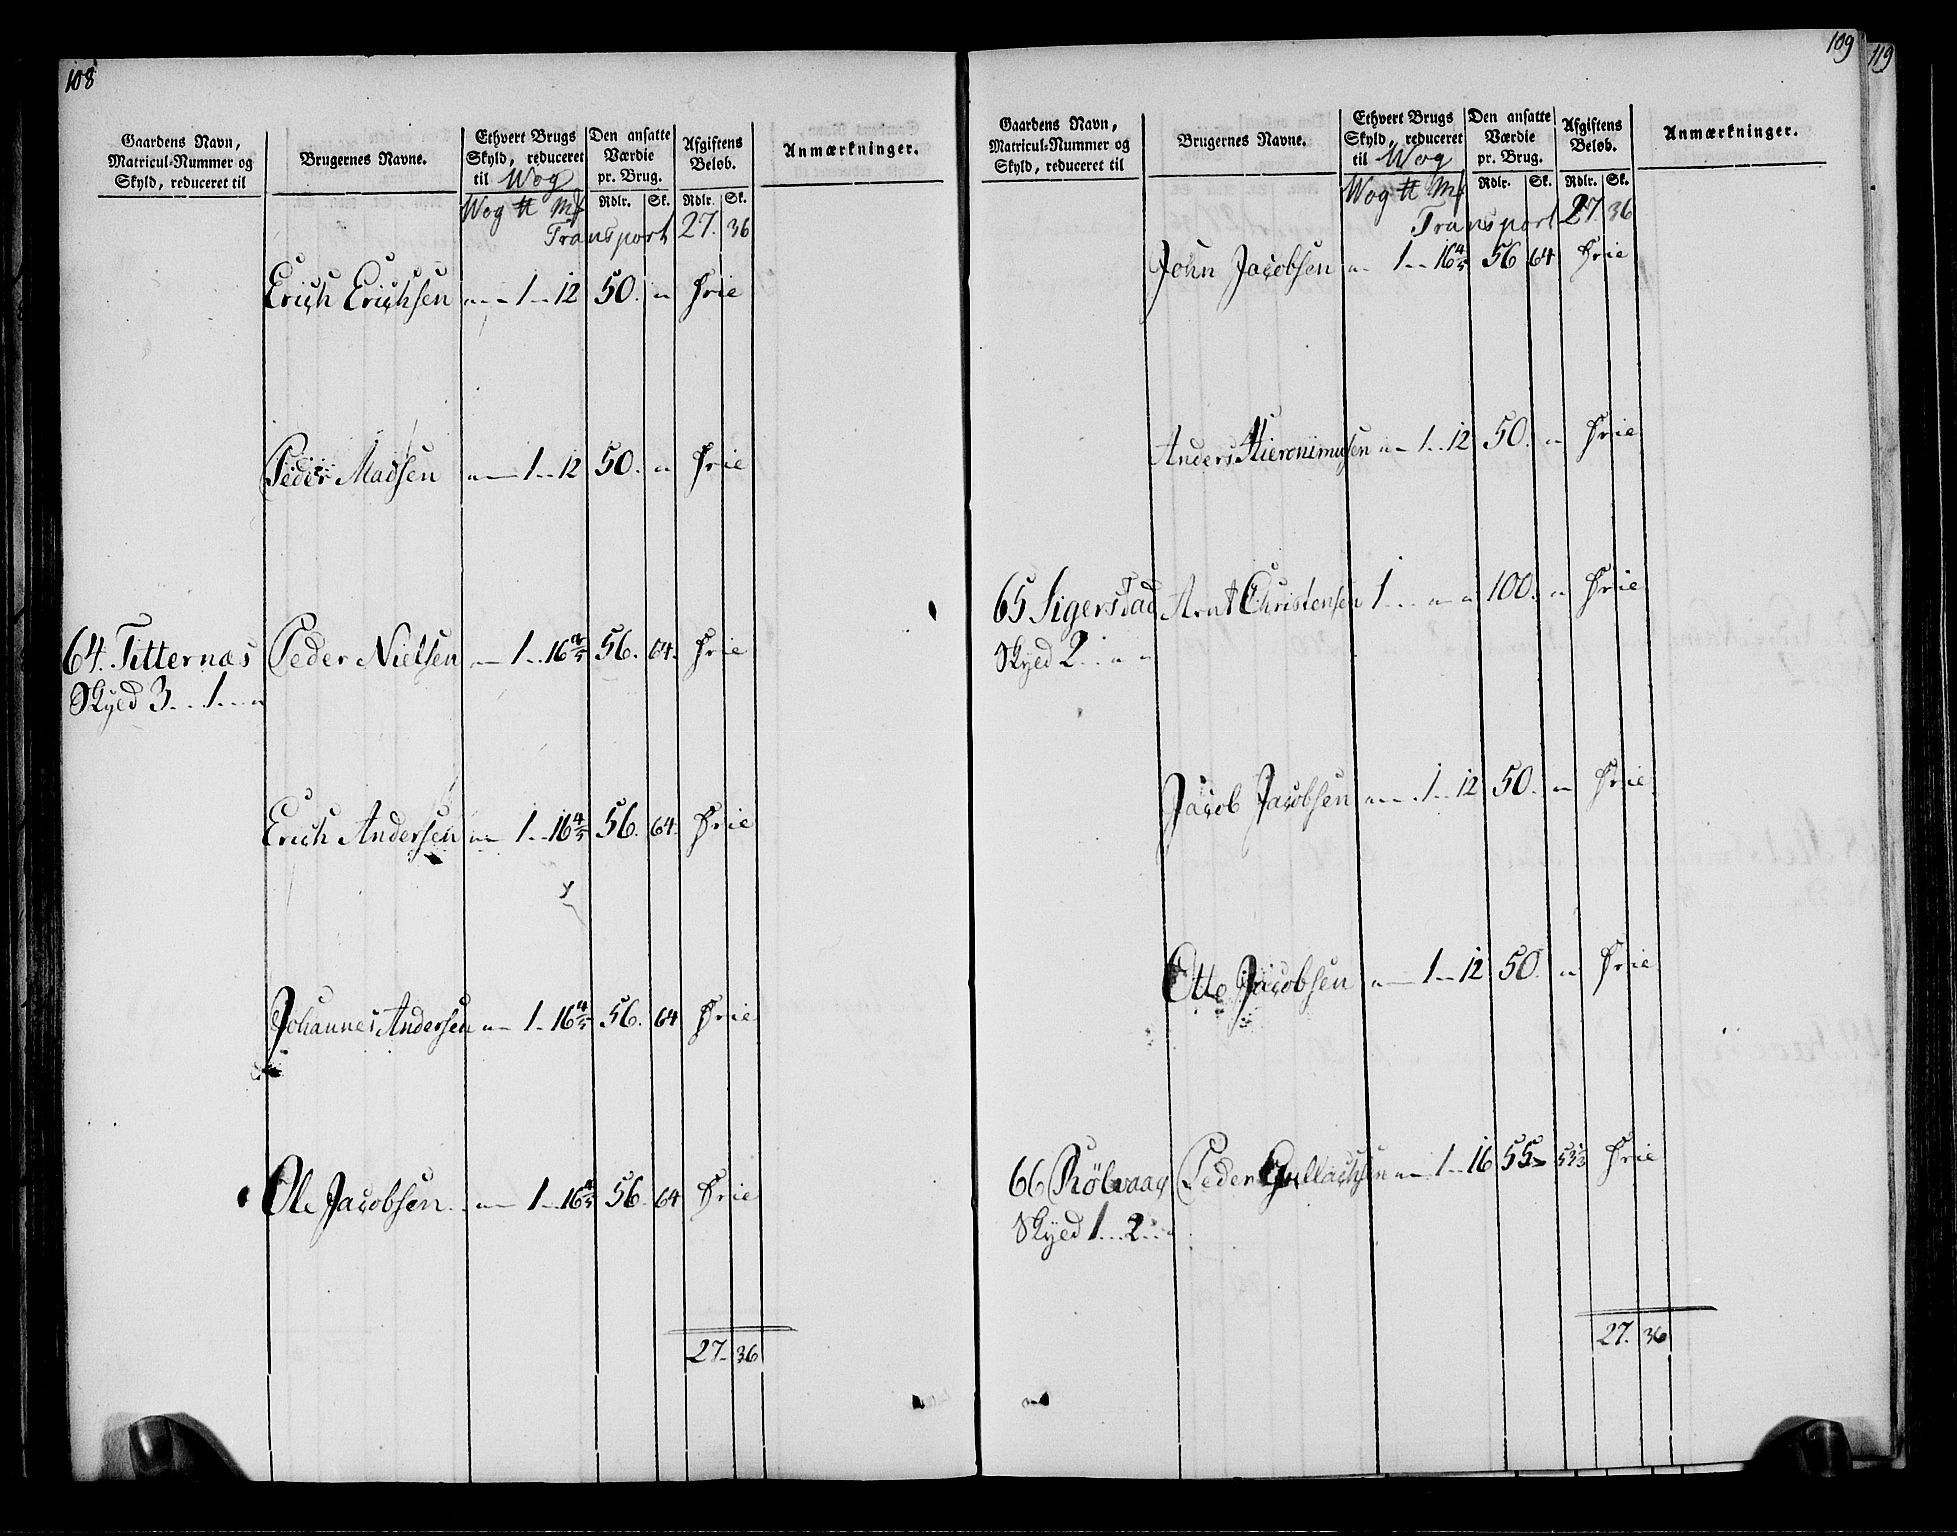 108
Gaardens Navn,
Matricul-Nummer og
Skyld, reduceret til
Brugernes Navne.
Ethvert Brugs
Skyld, reduceret
til Wog
Den ansatte
Værdie
pr. Brug.
Afgiftens
Beløb.
Anmærkninger.
Wog ℔ Mk Rdlr. Sk. Rdlr. Sk.
Transport 27. 36
Erich Erichsen „ – 1 – 12 50. „ Frie
Peder Madsen „ – 1 – 12 50. „ Frie
64. Titternæs Peder Nielsen „ – 1 – 16 4/5 56. 64. Frie
Skyld 3 . . 1 . . „
Erich Andersen „ – 1 – 16 4/5 56. 64. Frie
Johannes Andersen „ – 1 – 16 4/5 56. 64 Frie
Ole Jacobsen „ – 1 – 16 4/5 56. 64 Frie
27. 36
109
119
Gaardens Navn,
Matricul-Nummer og
Skyld, reduceret til
Brugernes Navne.
Ethvert Brugs
Skyld, reduceret
til Wog
Den ansatte
Værdie
pr. Brug.
Afgiftens
Beløb.
Anmærkninger.
Wog ℔ Mk Rdlr. Sk. Rdlr. Sk.
Transport 27 36
John Jacobsen „ – 1 – 16 4/5 56 64 Frie
Anders Hieronimusen „ – 1 – 12 50. „ Frie
65 Sigerstad Arnt Christensen 1 . . „ „ 100. „ Frie
Skyld 2 . . „ „
Jacob Jacobsen „ – 1 – 12 50. „ Frie
Otte Jacobsen „ – 1 – 12 50. „ Frie
66 Rölvaag Peder Gullachsen „ – 1 – 16 55 53 1/3 Frie
Skyld 1 . . 2 . . „
27. 36